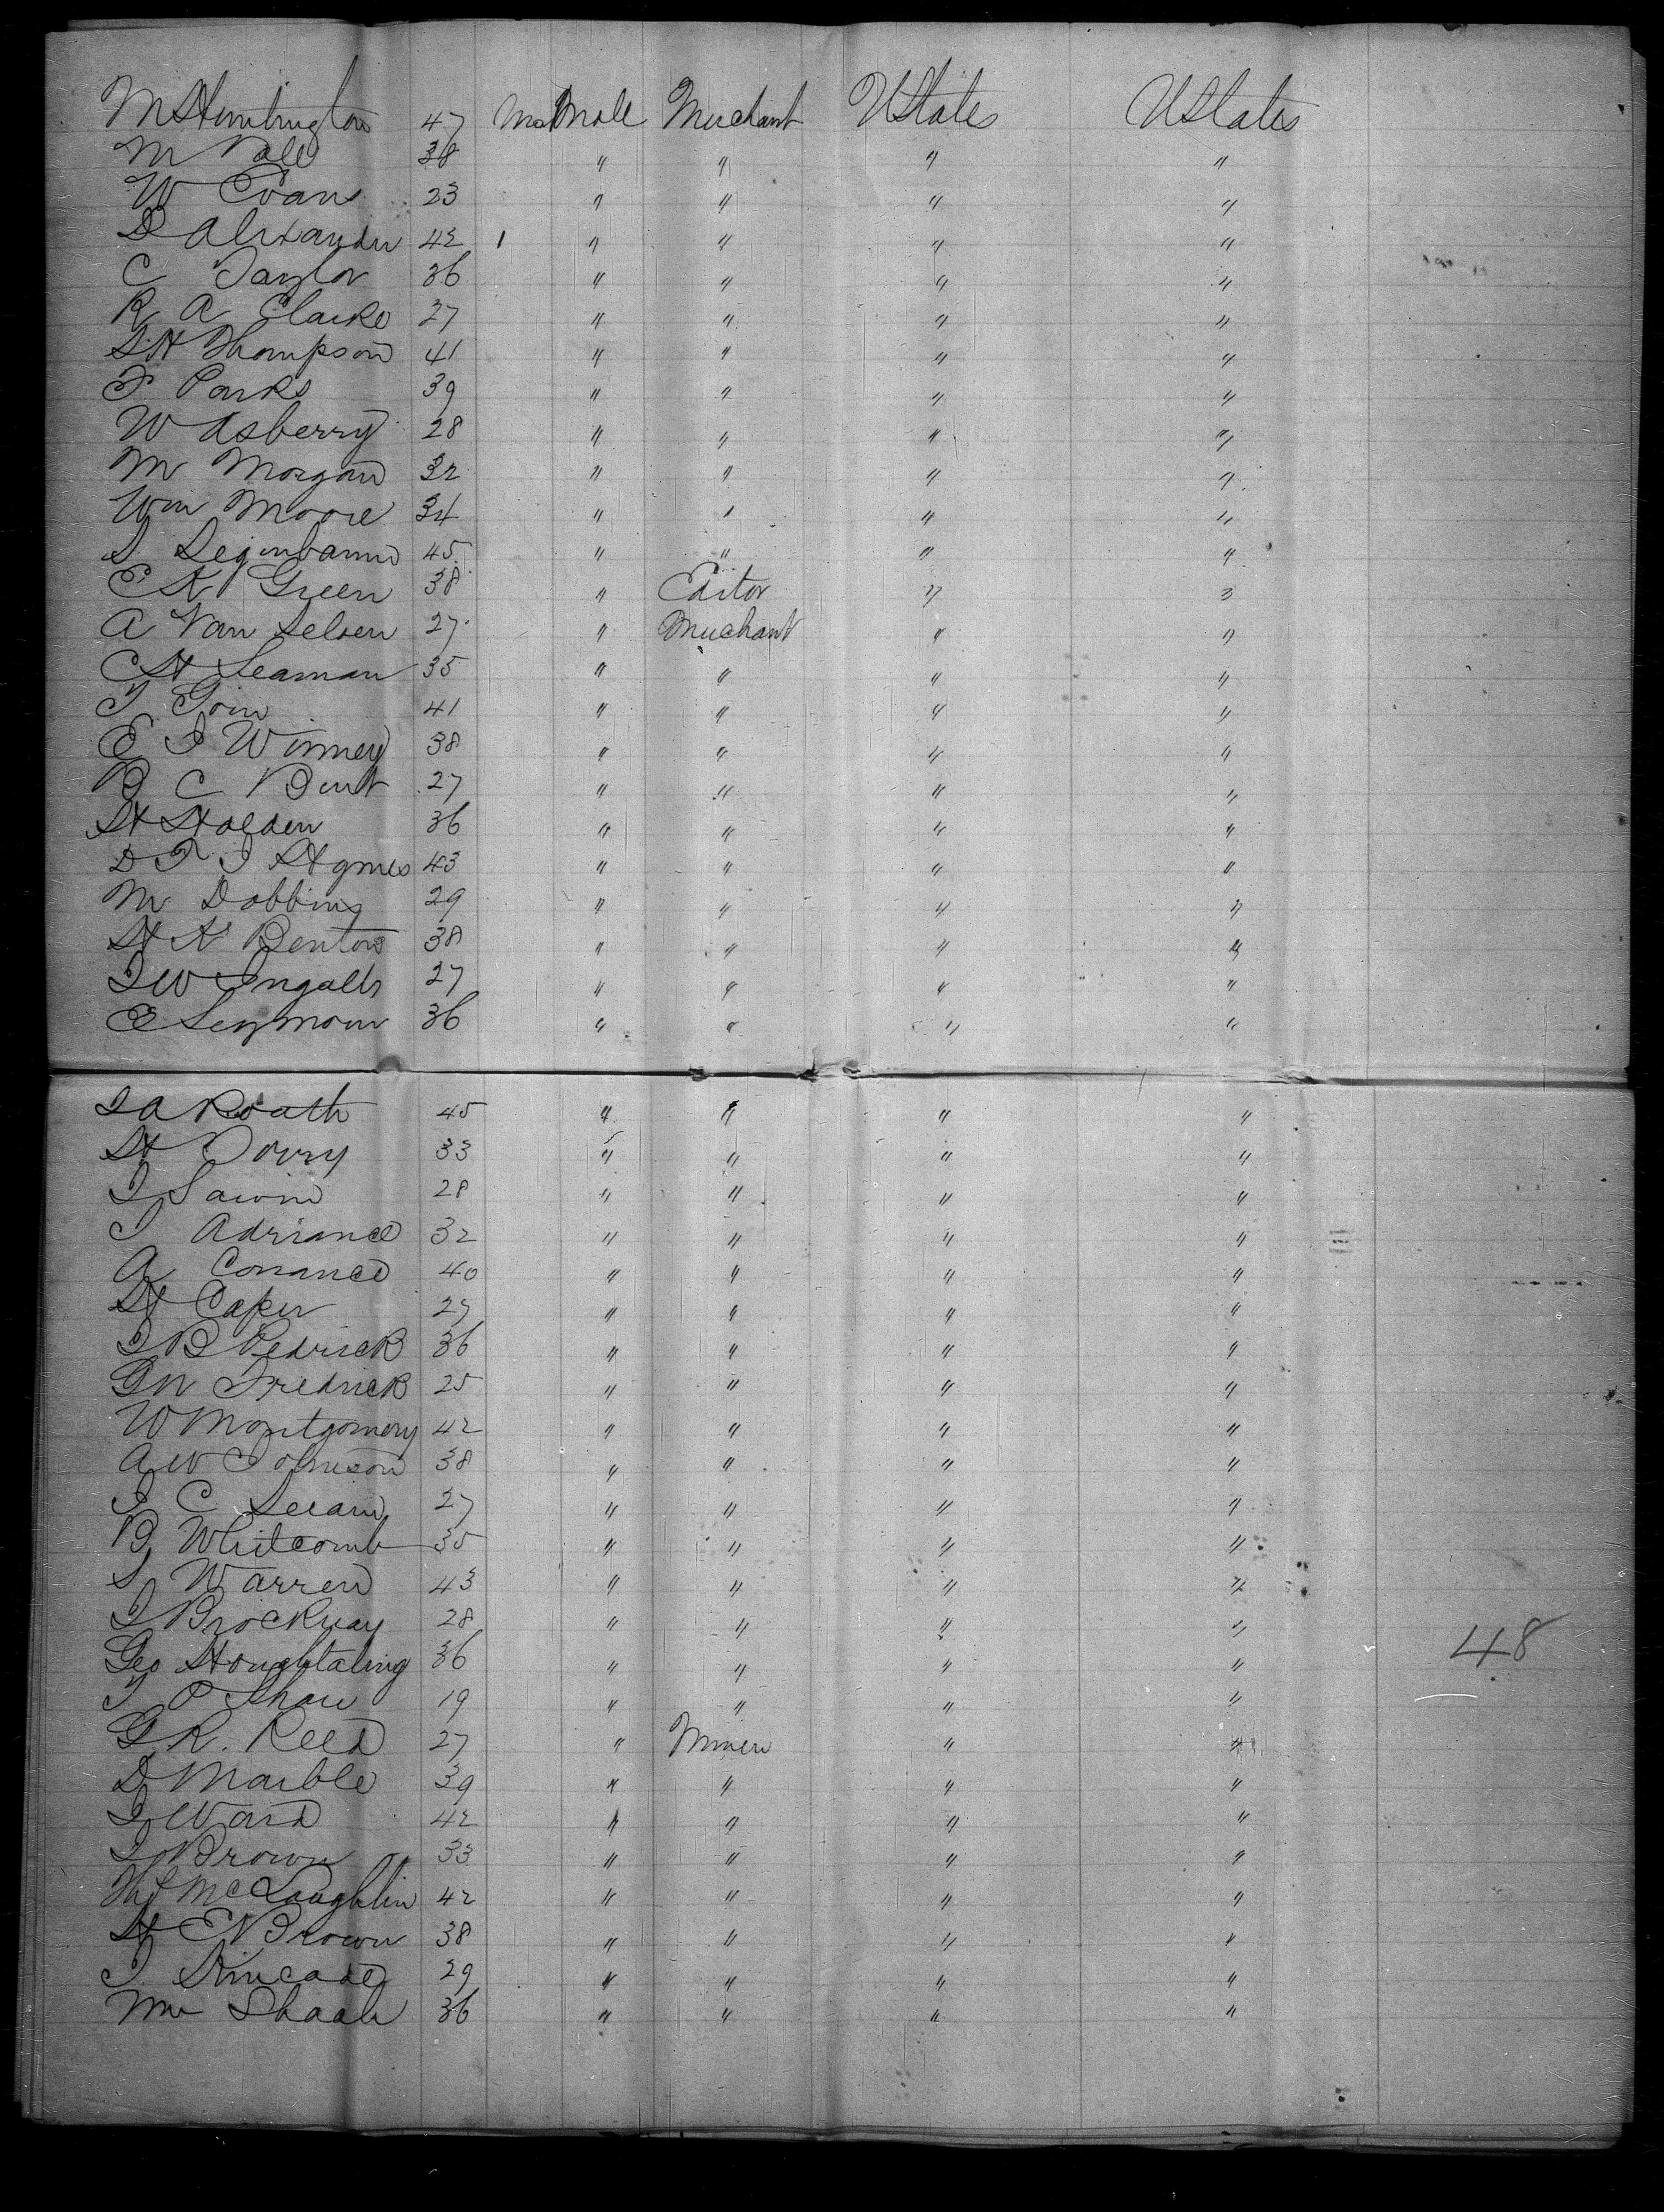 M Huntington 47 Male Merchant UStates UStates
M 38 " " " "
W Evans 23 " " " "
D Alexander 42 " " " "
C Taylor 36 " " " "
R A Clarke 27 " " " "
S H Thompson 41 " " " "
F Parks 39 " " " "
W Asberry 28 " " " "
M Morgan 32 " " " "
Wm Moore 34 " " " "
45 " " " "
E K Green 38 " Editor " "
A Van 27 " Merchant " "
C H Seaman 35 " " " "
T Goin 41 " " " "
E J Winney 38 " " " "
B C Bent 27 " " " "
H Holden 36 " " " "
43 " " " "
M Dobbins 29 " " " "
H K Benton 38 " " " "
J W Ingalls 27 " " " "
E Seymour 36 " " " "
J A Roath 45 " " " "
H 33 " " " "
J Sawin 28 " " " "
J Adriance 32 " " " "
A 40 " " " "
H Caper 27 " " " "
J B Pedrick 36 " " " "
G W Fredrick 25 " " " "
W Montgomery 42 " " " "
A W Johnson 38 " " " "
J C 27 " " " "
B Whitcomb 35 " " " "
S Warren 43 " " " "
J Brockway 28 " " " "
Geo Houghtaling 36 " " " "
T P Shaw 19 " " " "
G R. Reed 27 " Miner " "
D Marble 39 " " " "
J Ward 42 " " " "
J Brown 33 " " " "
McLaughlin 42 " " " "
H E Brown 38 " " " "
J Kincade 29 " " " "
36 " " " "
48